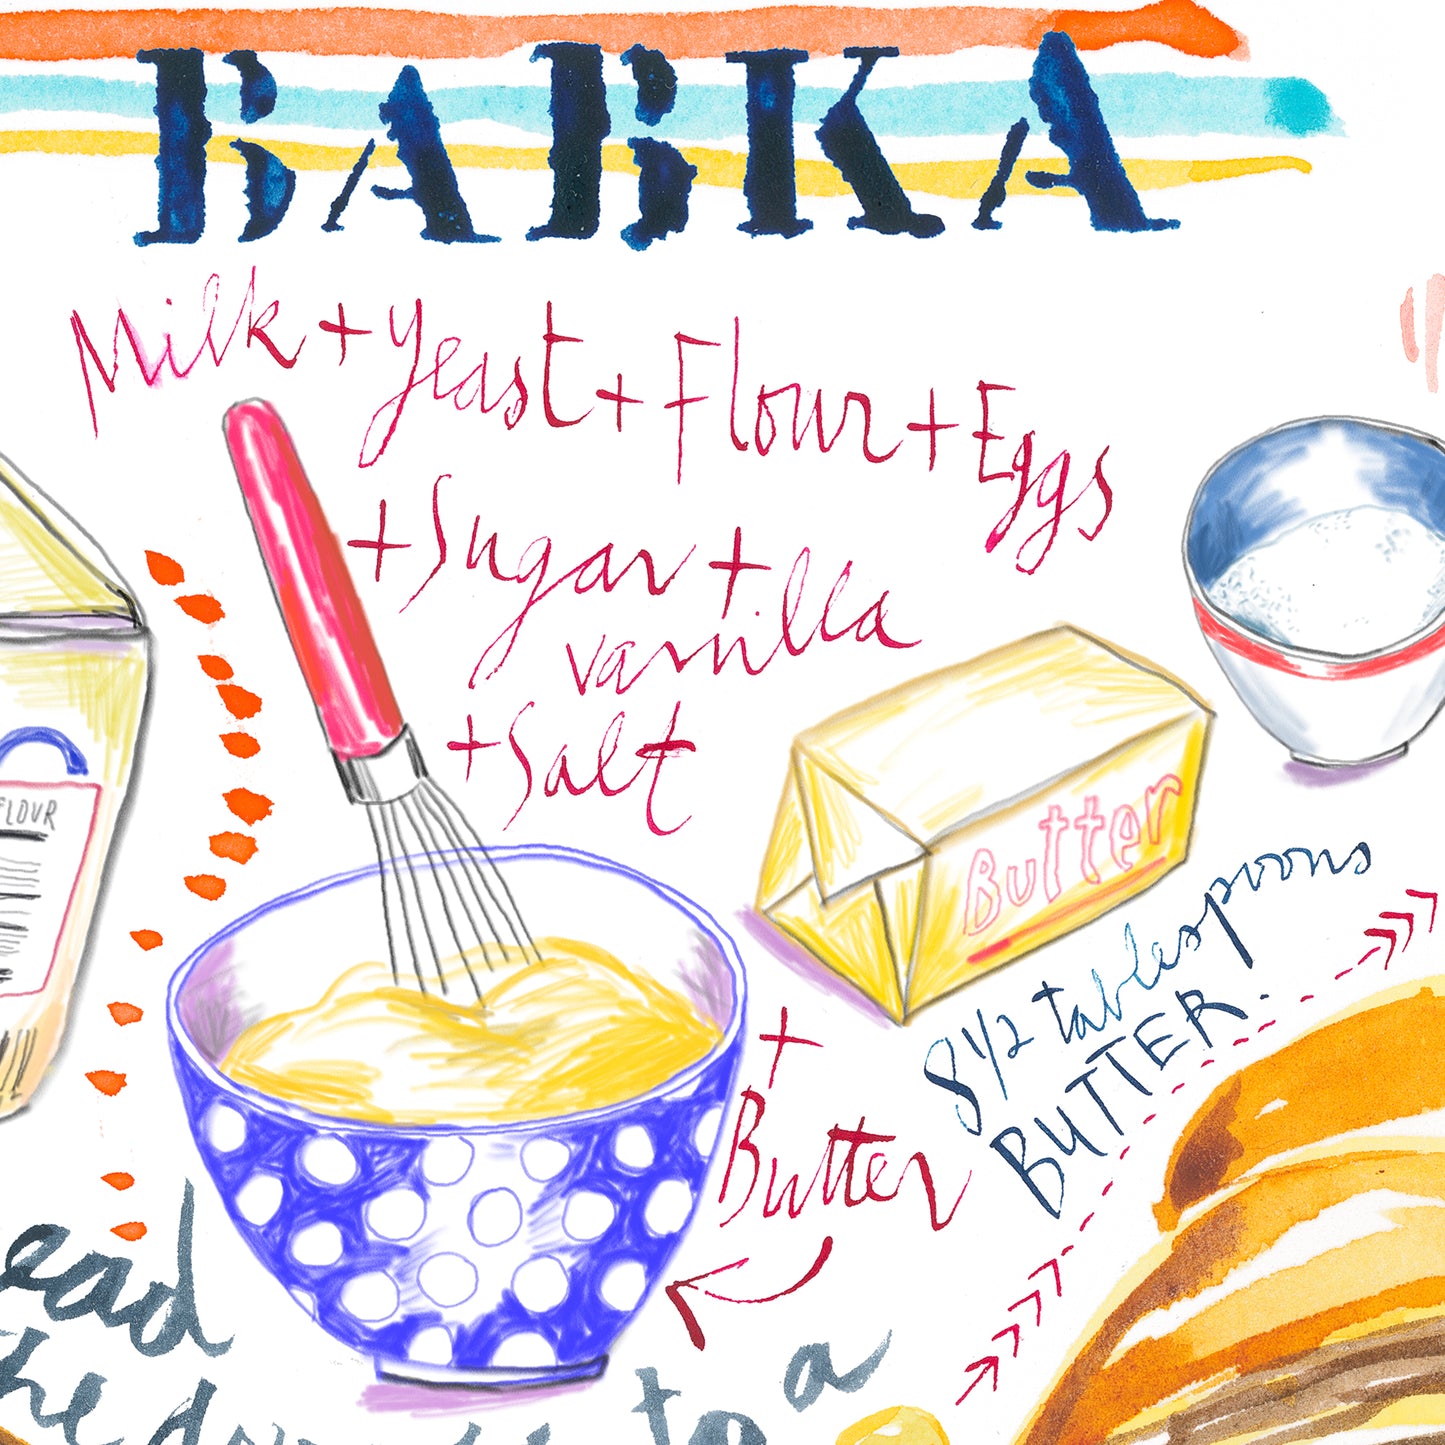 BABKA
Milk + yeast + Flour + Eggs
+ Sugar +
vanilla
+ Salt
FLOUR
Butter
8 1/2 tablespoons
BUTTER
+
Butter
ead
he do to a